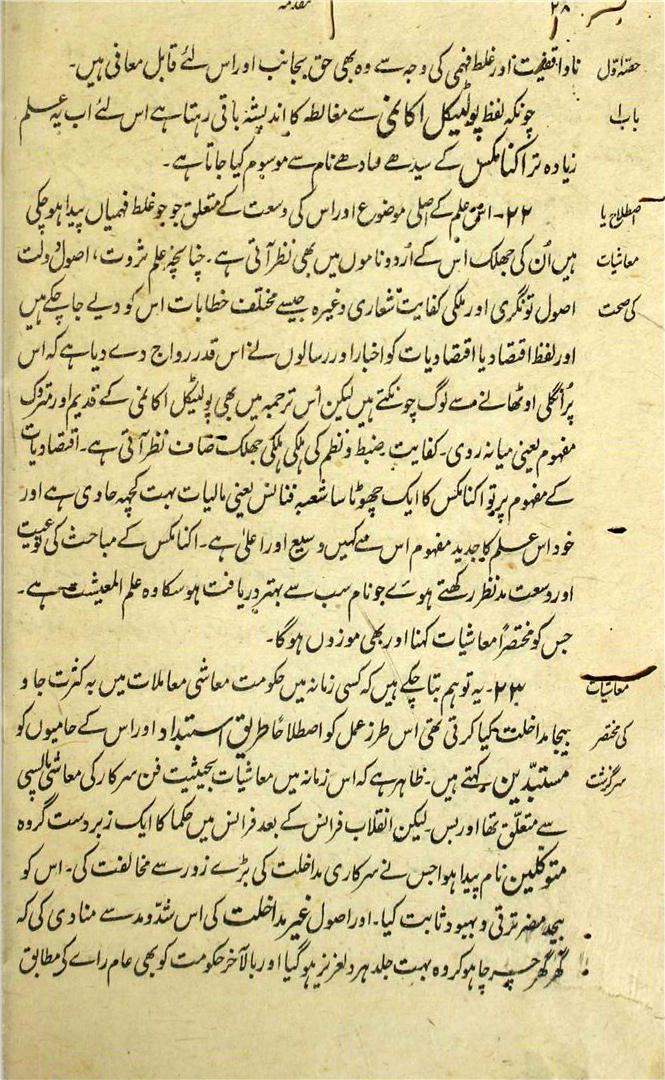 ۲۸
مقدمہ
حصۂ اول
ناواقفیت اور غلط فہمی کی وجہ سے وہ بھی حق بجانب اور اس لئے قابل معافی ہیں۔
باب ا
چونکہ لفظ پولٹیکل اکانمی سے مغالطہ کا اندیشہ باقی رہتا ہے اس لئے اب یہ علم
زیادہ تر اکنامکس کے سیدھے سادھے نام سے موسوم کیا جاتا ہے۔
اصطلاح یا
۲۲۔ اس علم کے اصلی موضوع اور اس کی وسعت کے متعلق جو جو غلط فہمیاں پیدا ہو چکی
معاشیات
ہیں اُن کی جھلک اس کے اُردو ناموں میں بھی نظر آتی ہے۔ چنانچہ علم ثروت، اصول دولت
کی صحت
اصول تونگری اور ملکی کفایت شعاری وغیرہ جیسے مختلف خطابات اس کو دیے جا چکے ہیں
اور لفظ اقتصاد یا اقتصادیات کو اخبار اور رسالوں نے اس قدر رواج دے دیا ہے کہ اس
پر اُنگلی اوٹھانے سے لوگ چونکتے ہیں لیکن اُس ترجمہ میں بھی پولٹیکل اکانمی کے قدیم اور متروک
مفہوم یعنی میانہ روی۔ کفایت ضبط و نظم کی ہلکی ہلکی جھلک صاف نظر آتی ہے۔ اقتصادیات
کے مفہوم پر تو اکنامکس کا ایک چھوٹا سا شعبہ فنانس یعنی مالیات بہت کچھ حاوی ہے اور
خود اس علم کا جدید مفہوم اس سے کہیں وسیع اور اعلیٰ ہے۔ اکنامکس کے مباحث کی نوعیت
اور وسعت مدنظر رکھتے ہوئے جو نام سب سے بہتر دریافت ہو سکا وہ علم المعیشت ہے۔
جس کو مختصراً معاشیات کہنا اور بھی موزوں ہوگا۔
معاشیات
۲۳۔ یہ تو ہم بتا چکے ہیں کہ کسی زمانہ میں حکومت معاشی معاملات میں بہ کثرت جا و
کی مختصر
بیجا مداخلت کیا کرتی تھی اس طرز عمل کو اصطلاحاً طریق استبداد اور اس کے حامیوں کو
سرگزشت
مستبدّین کہتے ہیں۔ ظاہر ہے کہ اس زمانہ میں معاشیات بحیثیت فن سرکار کی معاشی پالیسی
سے متعلّق تھا اور بس۔ لیکن انقلاب فرانس کے بعد فرانس میں حکما کا ایک زبردست گروہ
متوکلین نام پیدا ہوا جس نے سرکاری مداخلت کی بڑے زور سے مخالفت کی۔ اس کو
بیحد مضر ترقی و بہبود ثابت کیا۔ اور اصول غیر مداخلت کی اس شدّ و مد سے منادی کی کہ
گھر گھر چرچا ہو کر وہ بہت جلد ہر دلعزیز ہو گیا اور بالآخر حکومت کو بھی عام رائے کی مطابق